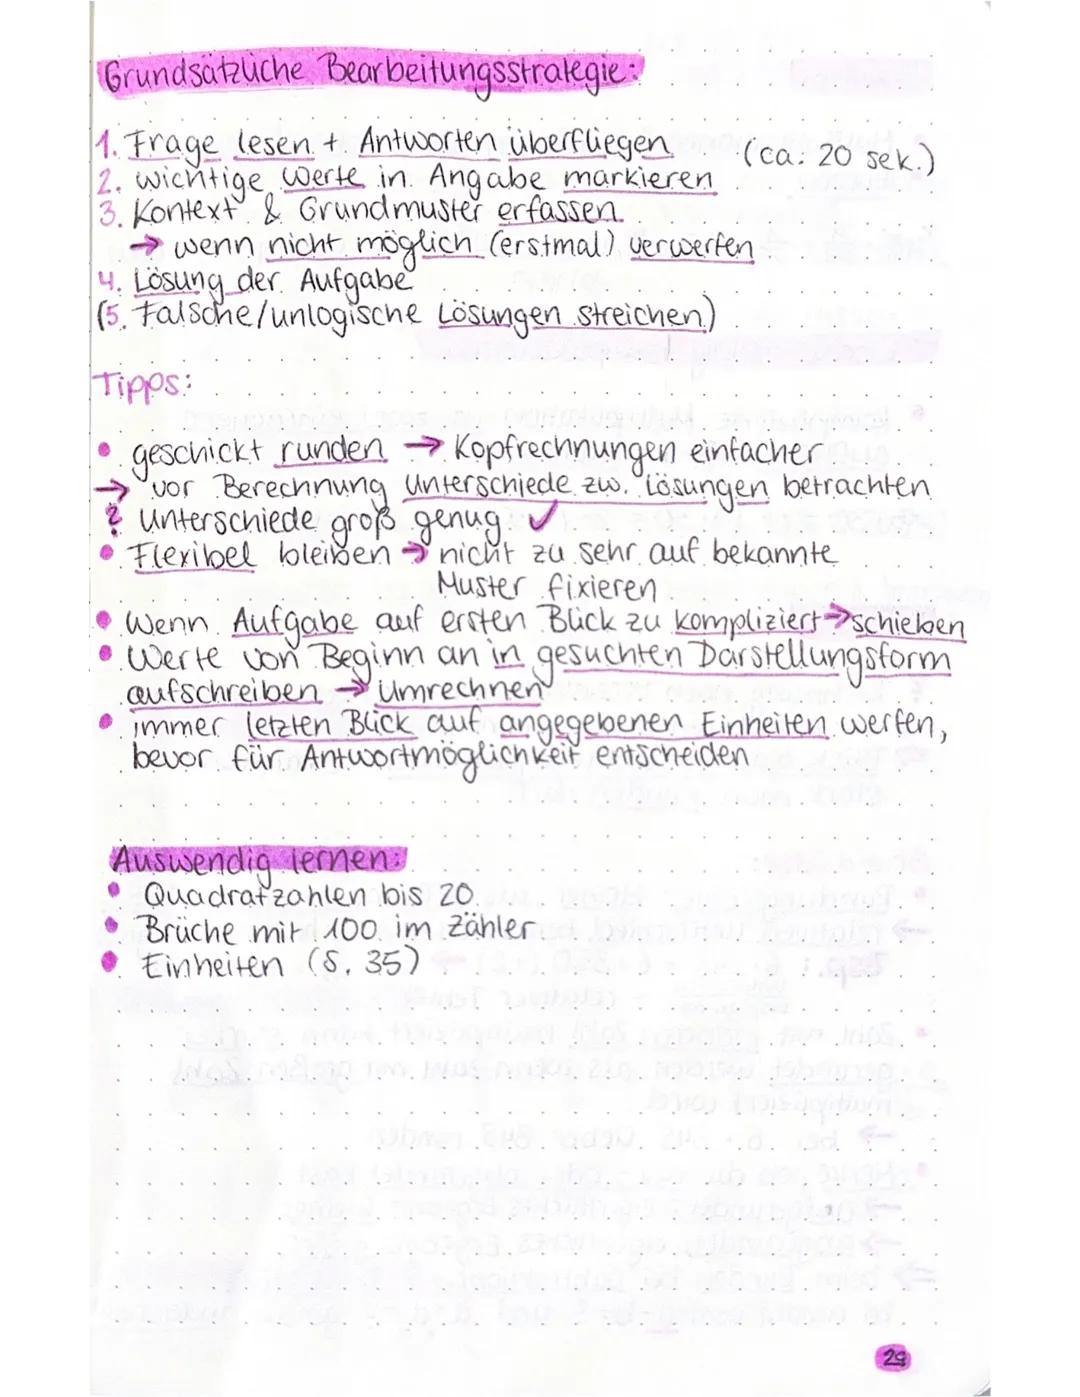 Grundsätzliche Bearbeitungsstrategie:
1. Frage lesen + Antworten überfliegen (ca. 20 sek.)
2. wichtige Werte in Angabe markieren
3. Kontext & Grundmuster erfassen
→ wenn nicht möglich (erstmal) verwerfen
4. Lösung der Aufgabe
(5. Falsche/unlogische Lösungen streichen)
Tipps:
• geschickt runden → Kopfrechnungen einfacher
→ vor Berechnung Unterschiede zw. Lösungen betrachten
? Unterschiede groß genug ✓
• Flexibel bleiben → nicht zu sehr auf bekannte
Muster fixieren
• Wenn Aufgabe auf ersten Blick zu kompliziert → schieben
• Werte von Beginn an in gesuchten Darstellungsform
aufschreiben → Umrechnen
• immer letzten Blick auf angegebenen Einheiten werfen,
bevor für Antwortmöglichkeit entscheiden
Auswendig lernen:
• Quadratzahlen bis 20
• Brüche mit 100 im Zähler
• Einheiten (S. 35)
29